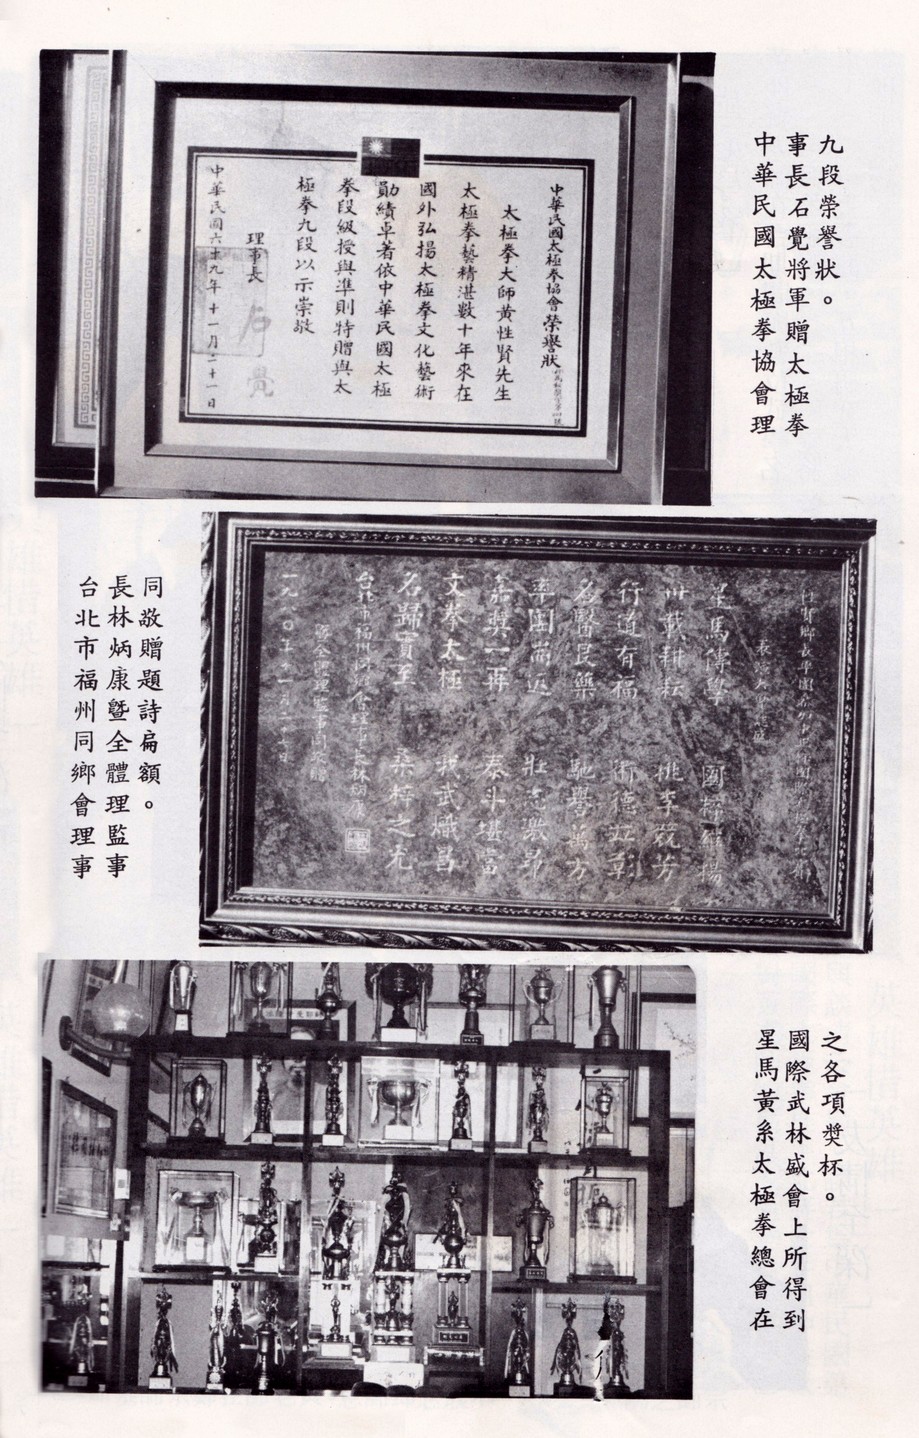 中華民國太極拳協會理
事長石覺將軍贈太極拳
九段榮譽狀。
中華民國太極拳協會榮譽狀
太極拳大師黃性賢先生
太極拳藝精湛數十年來在
國外弘揚太極拳文化藝術
勛績卓著依中華民國太極
拳段級授與準則特贈與太
極拳九段以示崇敬
理事長 石覺
中華民國六十九年十一月二十一日
台北市福州同鄉會理事
長林炳康暨全體理監事
同敬贈題詩扁額。
星馬傳學 國粹 揚
卅載耕耘 桃李競芳
行道有福 術德並彰
名醫良藥 馳譽萬方
率團 壯志激昂
嘉獎一再 泰斗堪當
文拳太極 我武熾昌
名歸實至 桑梓之光
台北市福州同鄉會理事長林炳康
暨全體理監事同敬贈
星馬黃系太極拳總會在
國際武林盛會上所得到
之各項獎杯。